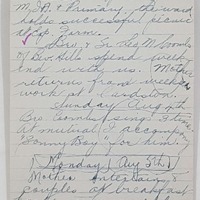 M. I. A. & Primary, the ward
holds successful picnic
at Cp. Farm.
Bro. & Sr. Leo M.
of Bev. Hills spend week
end with us. Mother
returns from week
work at Cardston.
Sunday Aug 4th
Bro sings
at mutual I accomp
"Sonny Boy" for him.
Monday (Aug 5th)
Mother entertains
couples at breakfast